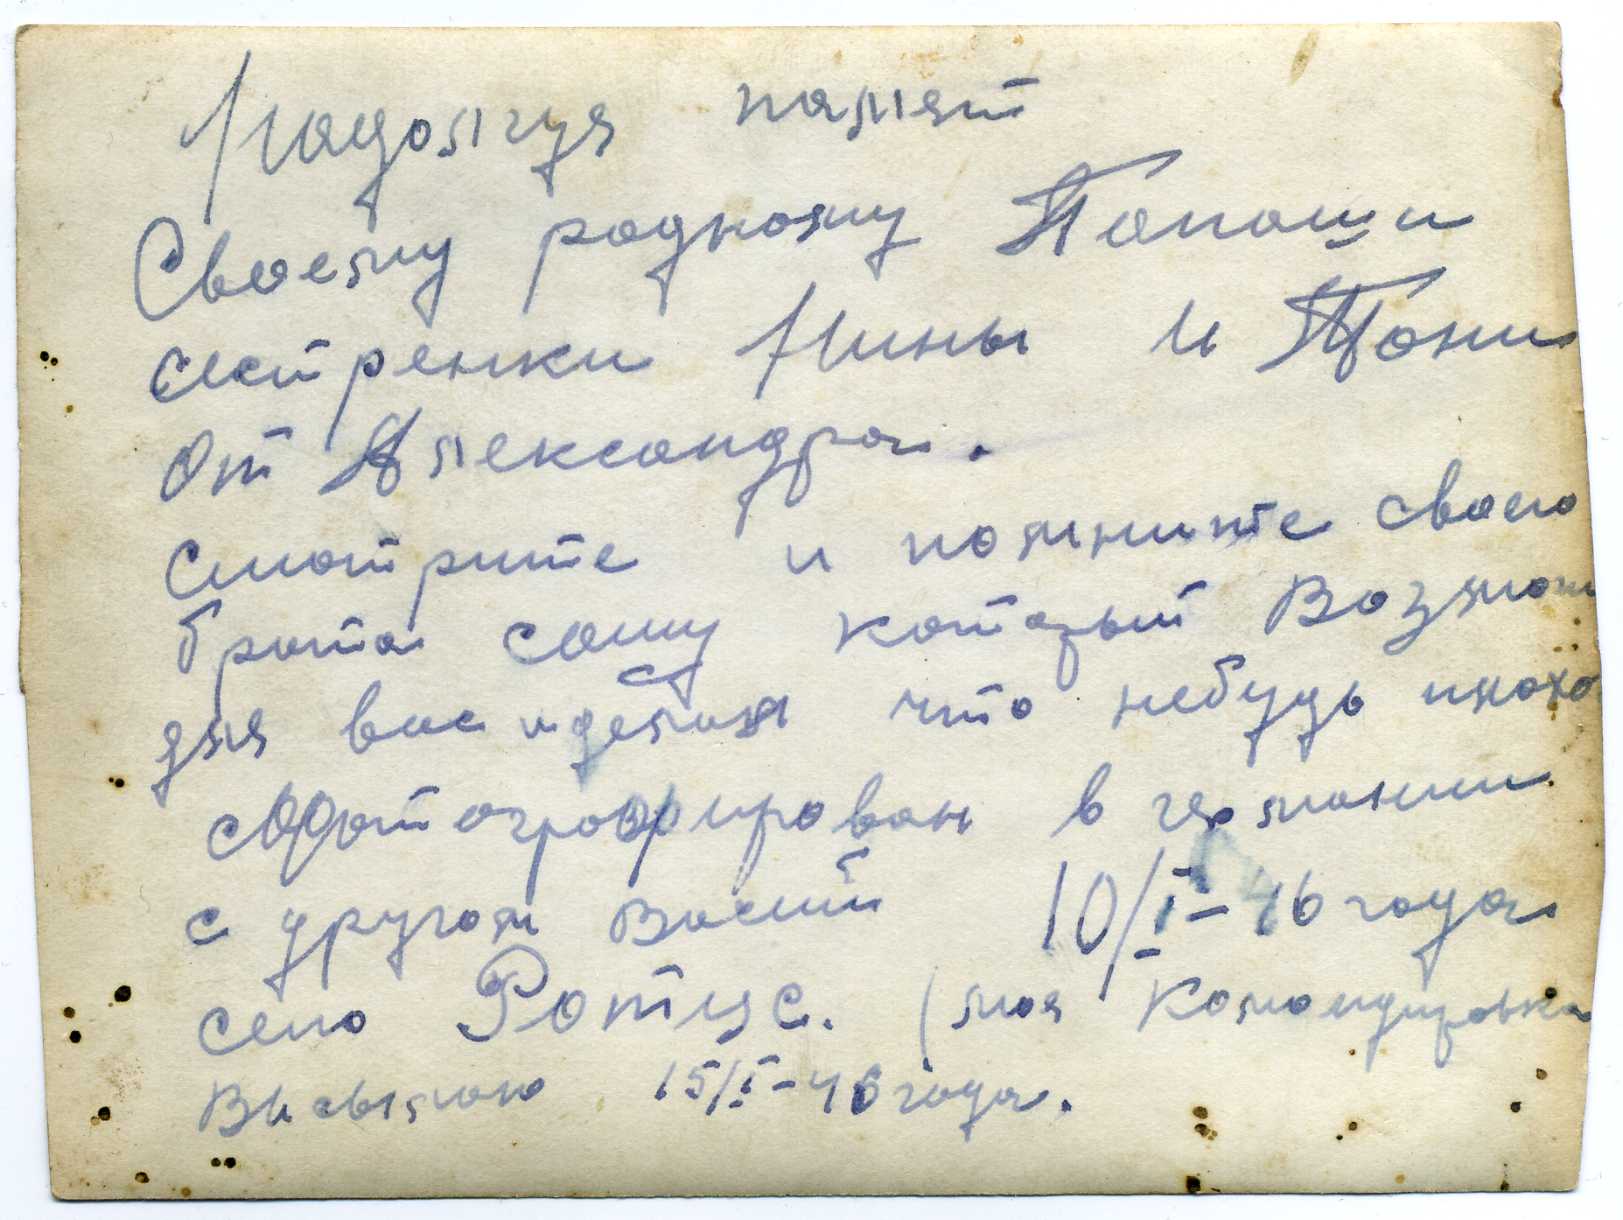 Надолгуя памят
Своему родному Папаши
сестренки Нины и Тони
От Александра.
Смотрите и помните своего
брата сашу который Возмож
для вас и делал что небудь плохо
сфотографирован в германии
с другом Васий 10/I-46 года
село Ротус. (моя Командировка
Высылаю 15/I-46 года.